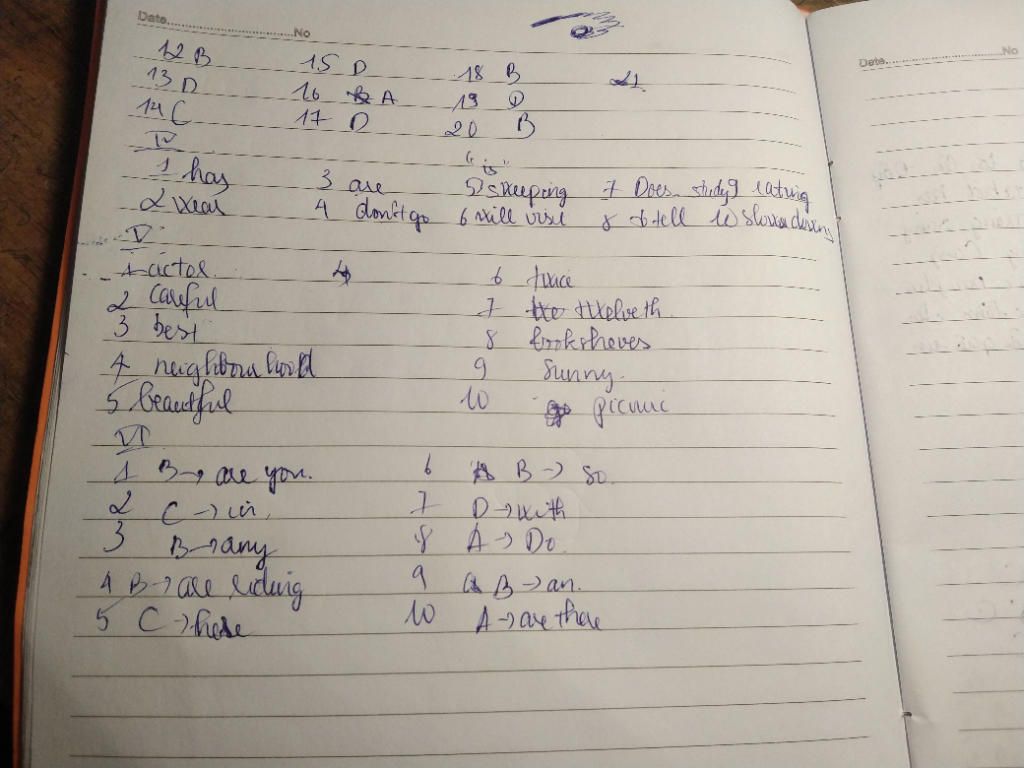 Date............................No
Date............................No
12 B 15 D 18 B 21.
13 D 16 A 19 D
14 C 17 D 20 B
IV
"is"
1 has 3 are 5 skeeping 7 Does study 9 eatung
2 wear 4 don't go 6 will visit 8 to tell 10 driving
V
1 actor. 6 twice
2 careful 7 twelveth
3 best 8 booksheves
4 neighbourhood 9 Sunny.
5 beautiful 10 picnic
VI
1 B → are you. 6 B → so.
2 C → in, 7 D → with
3 B → any 8 A → Do.
4 B → are riding 9 B → an.
5 C → here 10 A → are there